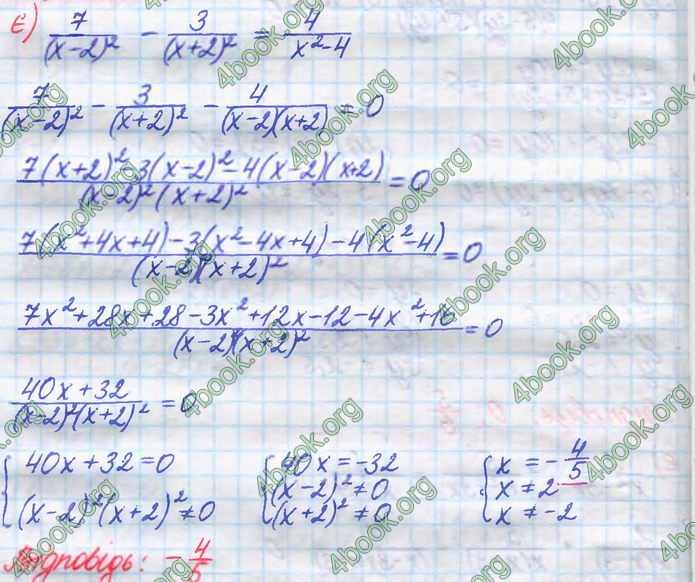 є) 7/(x-2)² - 3/(x+2)² = 4/(x²-4)
7/(x-2)² - 3/(x+2)² - 4/((x-2)(x+2)) = 0
(7(x+2)² - 3(x-2)² - 4(x-2)(x+2))/((x-2)²(x+2)²) = 0
(7(x²+4x+4) - 3(x²-4x+4) - 4(x²-4))/((x-2)²(x+2)²) = 0
(7x²+28x+28-3x²+12x-12-4x²+16)/((x-2)²(x+2)²) = 0
(40x+32)/((x-2)²(x+2)²) = 0
{ 40x+32=0 { 40x=-32 { x = -4/5
(x-2)²(x+2)²≠0 (x-2)²≠0 x≠2
(x+2)²≠0 x≠-2
Відповідь: -4/5
4book.org